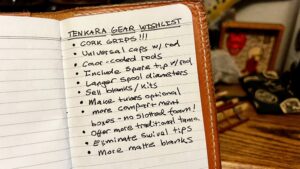 TENKARA GEAR WISHLIST
• CORK GRIPS!!!
• Universal caps w/ rod
• Color-coded rods
• Include spare tip w/ rod
• Larger Spool diameters
• Sell blanks/kits
• Make tubes optional
• more compartment
boxes - no slotted foam!
• Offer more traditional
• Eliminate swivel tips
• More matte blanks